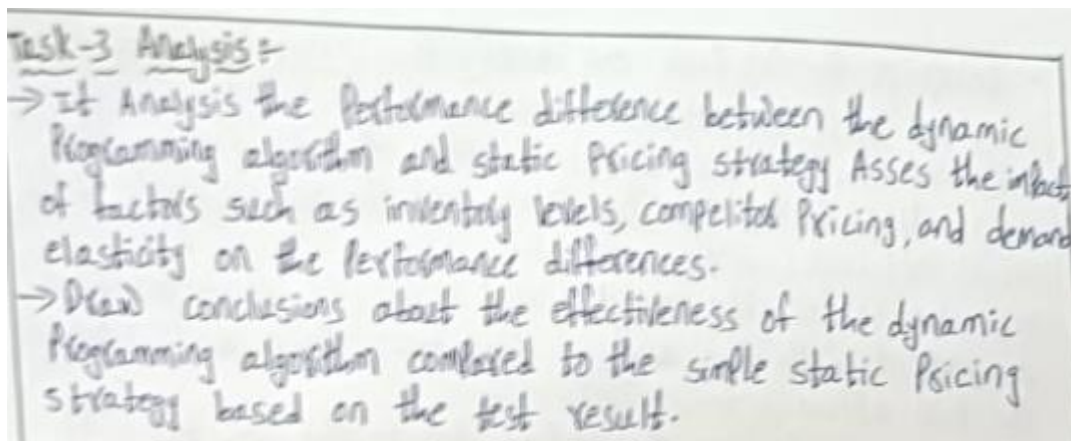 Task-3 Analysis:-
→ It Analysis the Performance difference between the dynamic
Programming algorithm and static Pricing strategy Asses the impact
of factors such as inventory levels, competitor Pricing, and demand
elasticity on the Performance differences.
→ Draw conclusions about the effectiveness of the dynamic
Programming algorithm compared to the simple static Pricing
strategy based on the test result.